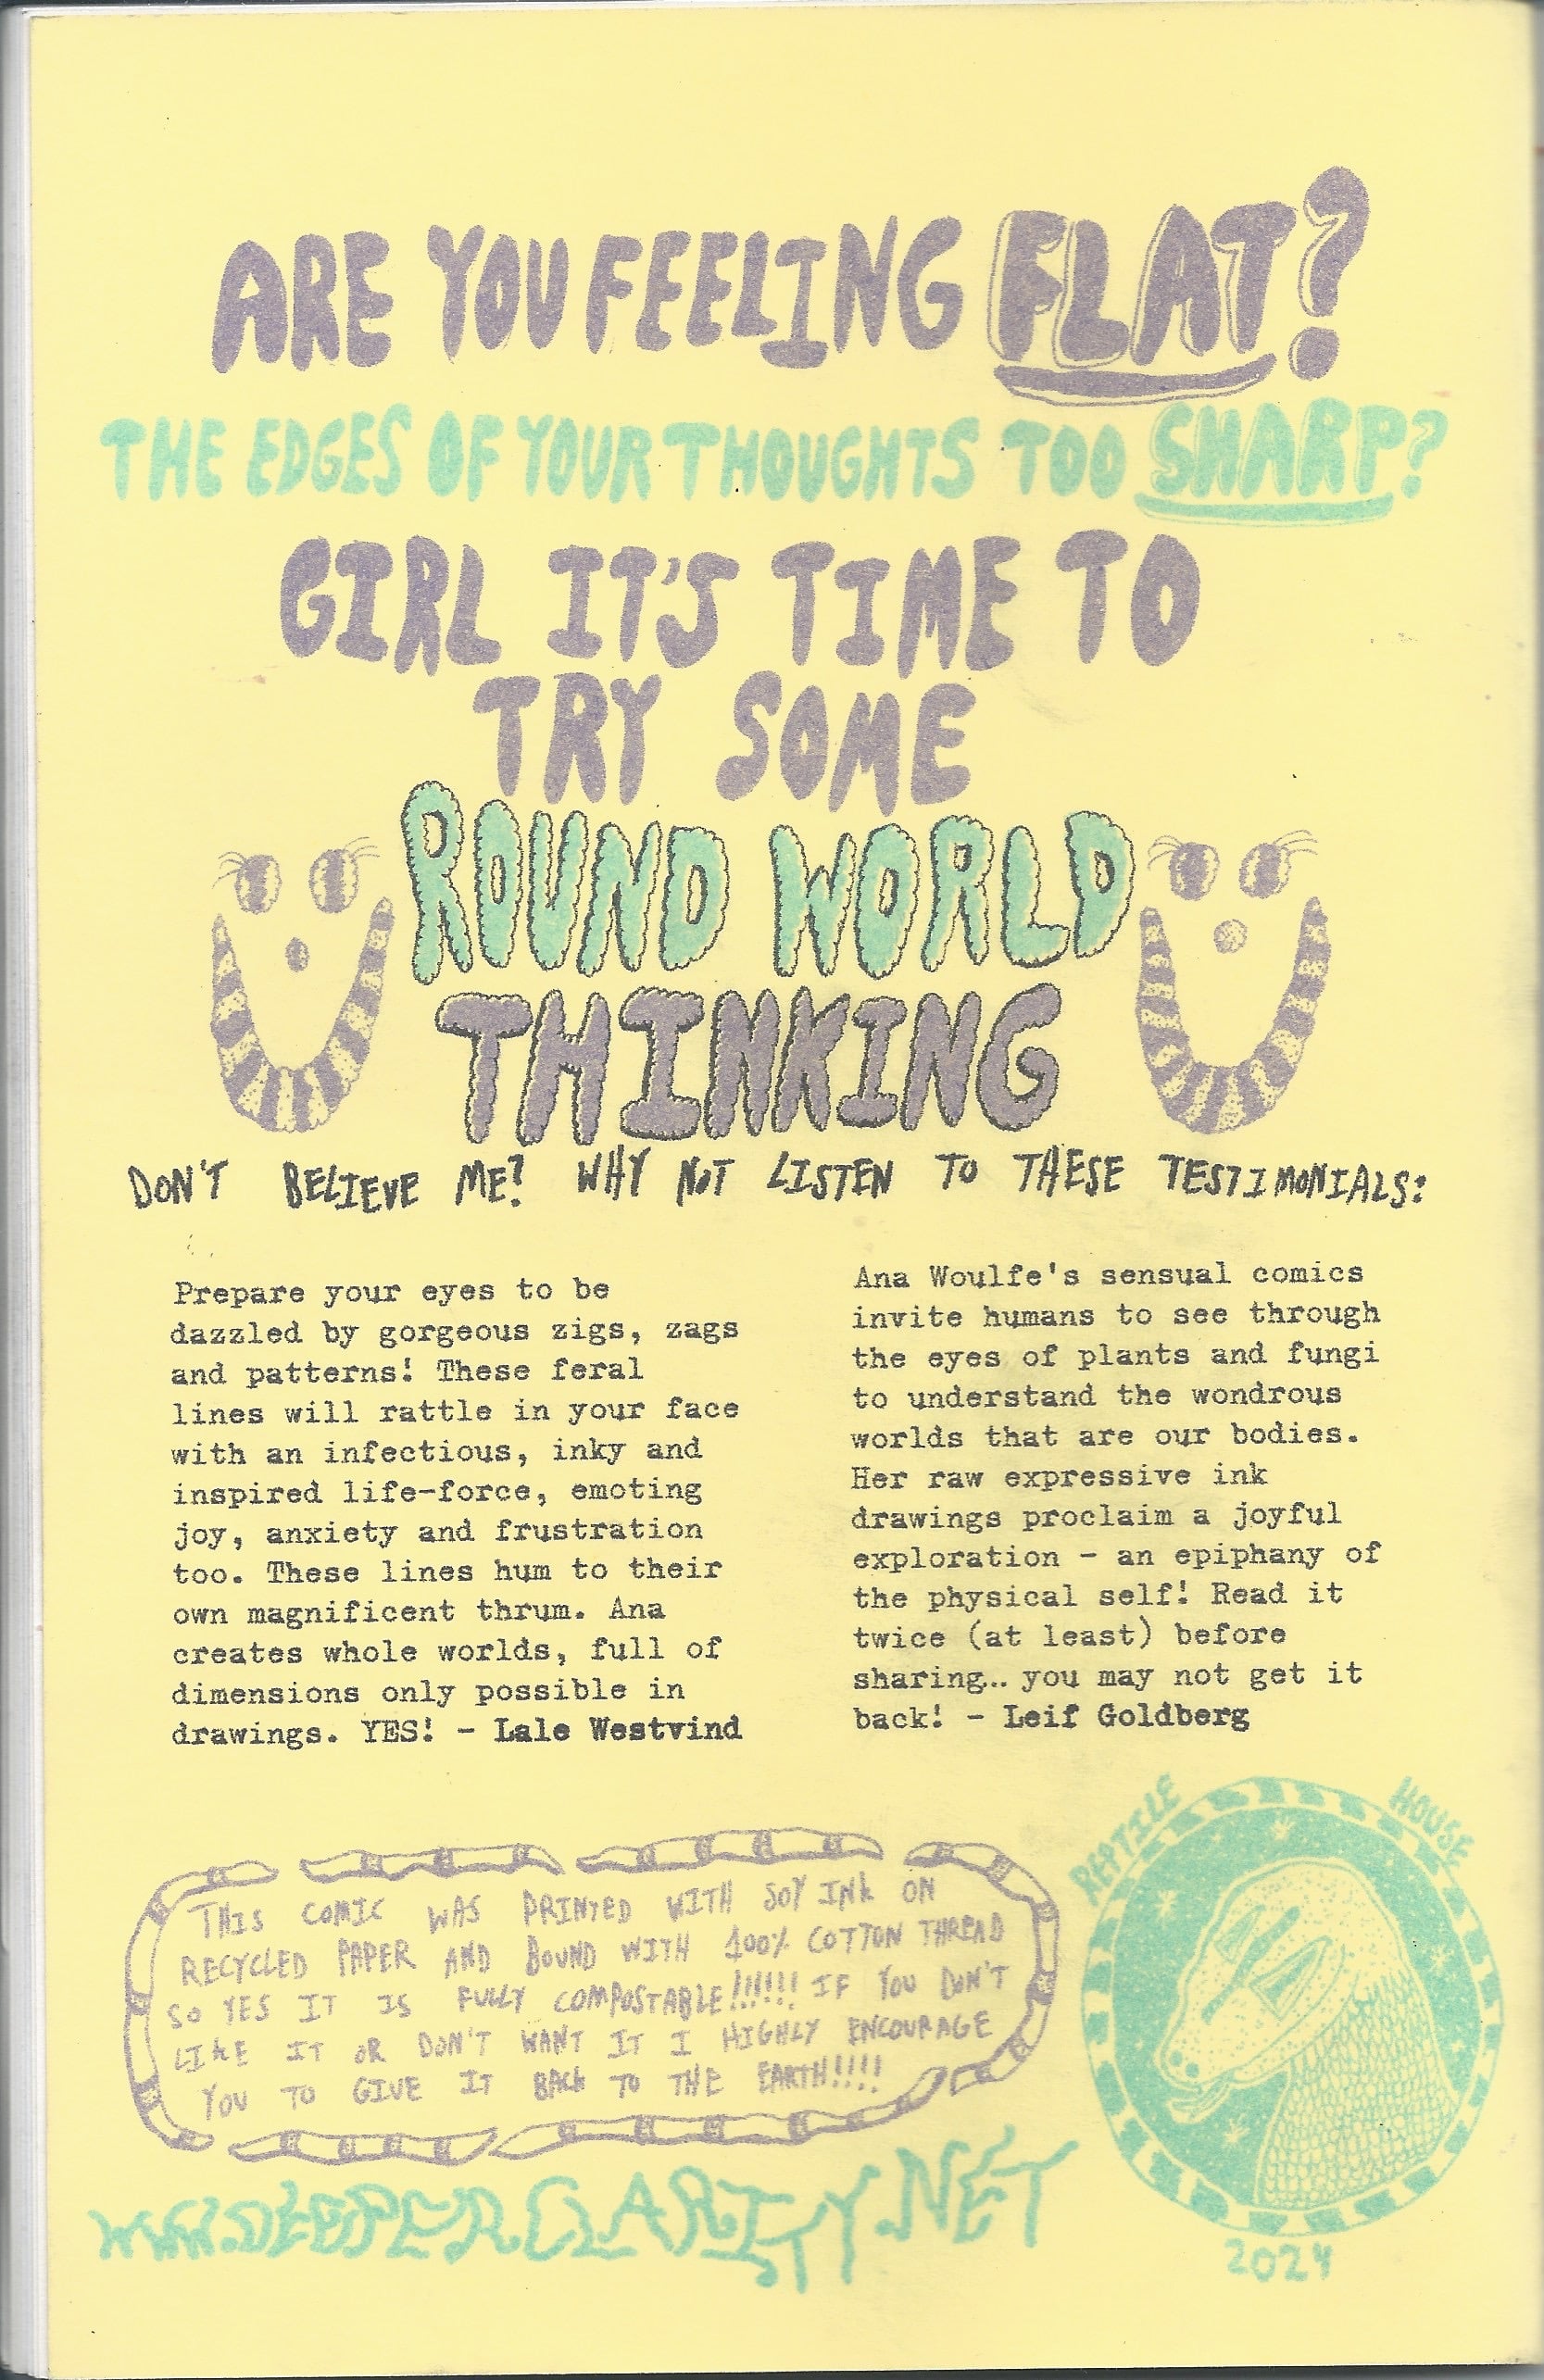 ARE YOU FEELING FLAT?
THE EDGES OF YOUR THOUGHTS TOO SHARP?
GIRL IT'S TIME TO
TRY SOME
ROUND WORLD
THINKING
DON'T BELIEVE ME? WHY NOT LISTEN TO THESE TESTIMONIALS:
Prepare your eyes to be
dazzled by gorgeous zigs, zags
and patterns! These feral
lines will rattle in your face
with an infectious, inky and
inspired life-force, emoting
joy, anxiety and frustration
too. These lines hum to their
own magnificent thrum. Ana
creates whole worlds, full of
dimensions only possible in
drawings. YES! - Lale Westvind
Ana Woulfe's sensual comics
invite humans to see through
the eyes of plants and fungi
to understand the wondrous
worlds that are our bodies.
Her raw expressive ink
drawings proclaim a joyful
exploration - an epiphany of
the physical self! Read it
twice (at least) before
sharing.. you may not get it
back! - Leif Goldberg
THIS COMIC WAS PRINTED WITH SOY INK ON
RECYCLED PAPER AND BOUND WITH 100% COTTON THREAD
SO YES IT IS FULLY COMPOSTABLE!!!!!! IF YOU DON'T
LIKE IT OR DON'T WANT IT I HIGHLY ENCOURAGE
YOU TO GIVE IT BACK TO THE EARTH!!!!
WWW.DEEPERCLARITY.NET
REPTILE HOUSE
2024